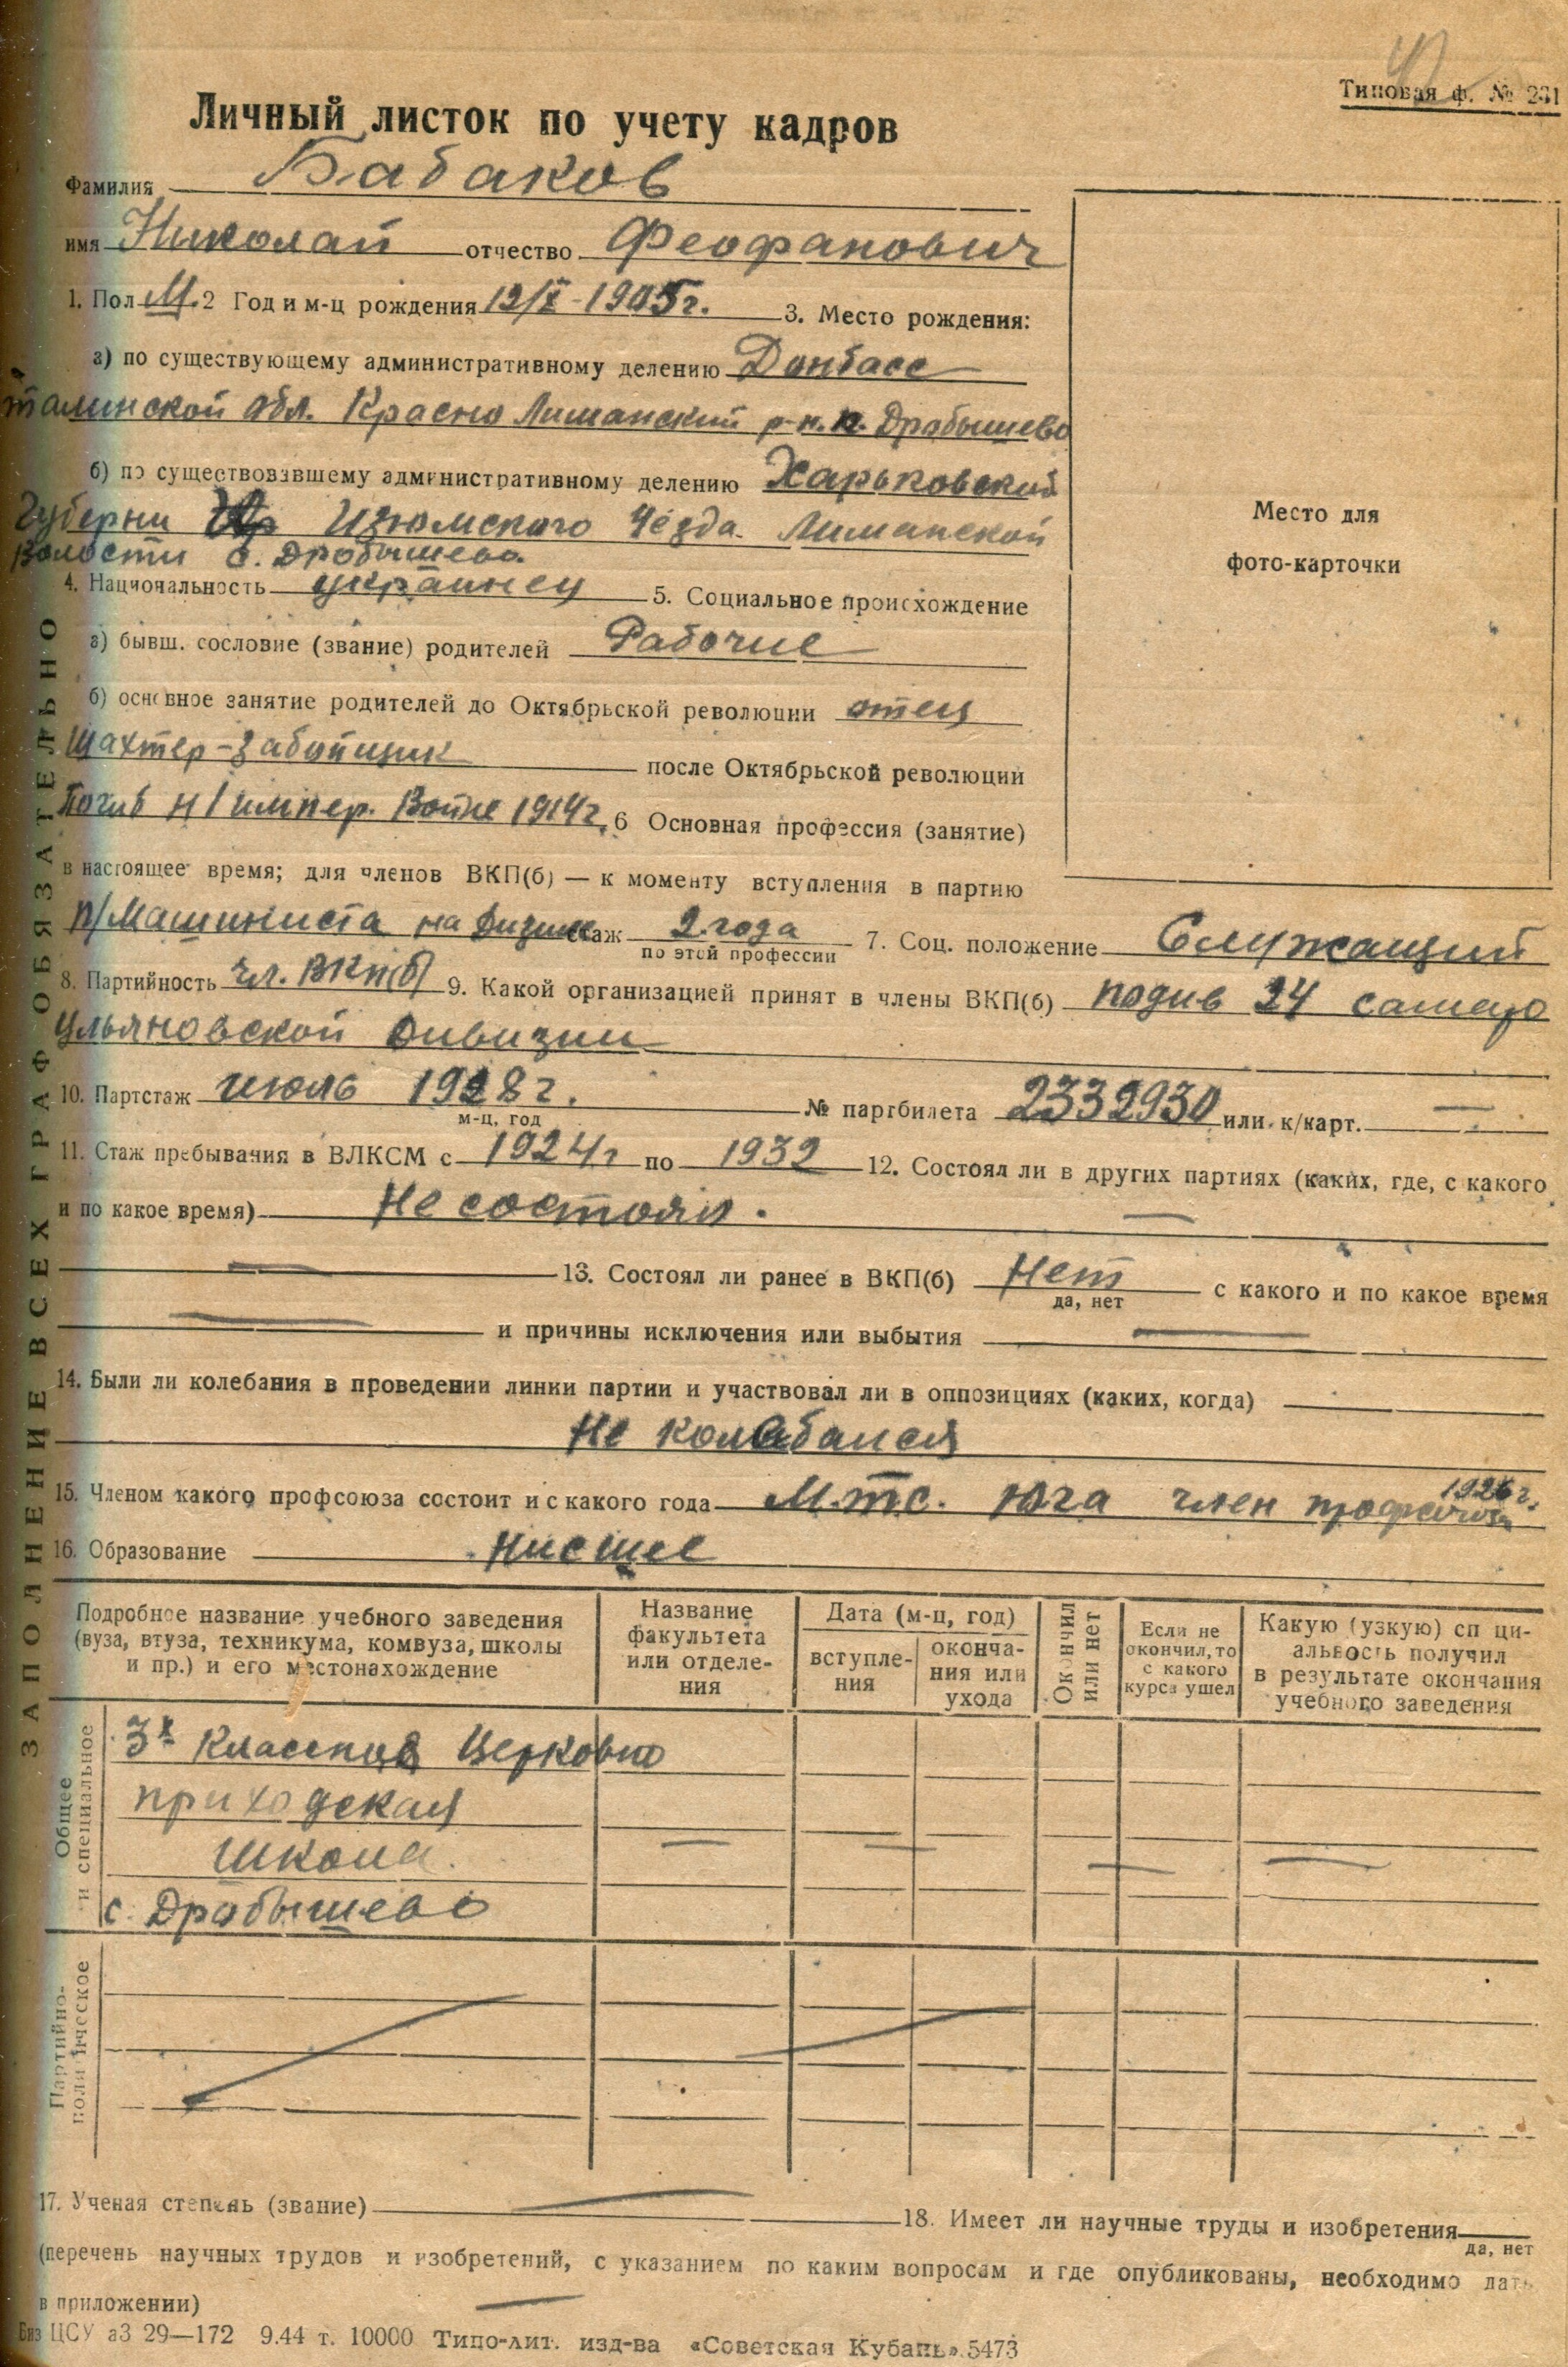 Типовая ф. № 231
Личный листок по учету кадров
Фамилия Бабаков
имя Николай отчество Феофанович
1. Пол М. 2 Год и м-ц рождения 12/X-1905г. 3. Место рождения:
а) по существующему административному делению Донбасс
талинской обл. Красно Лиманский р-н. Дробышево
б) по существовавшему административному делению Харьковской
Губерни Изюмского Уезда. Лиманской
Волости с. Дробышева.
4. Национальность украинец 5. Социальное происхождение
а) бывш. сословие (звание) родителей Рабочие
б) основное занятие родителей до Октябрьской революции отец
Шахтер-Забойщик после Октябрьской революции
Погиб н/импер. Войне 1914г. 6 Основная профессия (занятие)
в настоящее время; для членов ВКП(б) — к моменту вступления в партию
п/Машиниста на стаж 2 года 7. Соц. положение Служащий
по этой профессии
8. Партийность чл. ВКП(б) 9. Какой организацией принят в члены ВКП(б) подив 24 самаро
Ульяновской дивизии
10. Партстаж июль 1928г. № партбилета 2332930 или к/карт. —
м-ц, год
11. Стаж пребывания в ВЛКСМ с 1924г по 1932 12. Состоял ли в других партиях (каких, где, с какого
и по какое время) Не состоял. —
— 13. Состоял ли ранее в ВКП(б) Нет с какого и по какое время
да, нет
— и причины исключения или выбытия —
14. Были ли колебания в проведении линии партии и участвовал ли в оппозициях (каких, когда)
Не колебался
15. Членом какого профсоюза состоит и с какого года М.т.с. Юга член профсоюза 1926г.
16. Образование нисшее
Подробное название учебного заведения
(вуза, втуза, техникума, комвуза, школы
и пр.) и его местонахождение
Название
факультета
или отделе-
ния
Дата (м-ц, год)
вступле-
ния
оконча-
ния или
ухода
Окончил
или нет
Если не
окончил, то
с какого
курса ушел
Какую (узкую) специ-
альность получил
в результате окончания
учебного заведения
Общее
и специальное
3х Класснав Церковно
приходская
Школа.
с. Дробышево
Партийно-
политическое
17. Ученая степень (звание) — 18. Имеет ли научные труды и изобретения
да, нет
(перечень научных трудов и изобретений, с указанием по каким вопросам и где опубликованы, необходимо дать
в приложении) —
Биз ЦСУ а3 29—172 9.44 т. 10000 Типо-лит. изд-ва «Советская Кубань». 5473
ЗАПОЛНЕНИЕ ВСЕХ ГРАФ ОБЯЗАТЕЛЬНО
Место для
фото-карточки